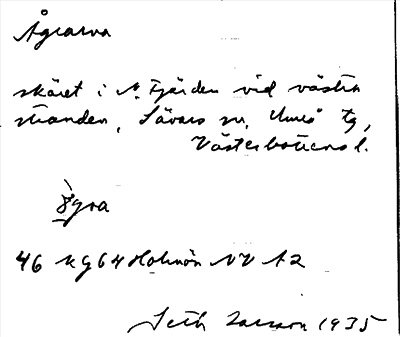 Ågrarna
skäret i N. Fjärden vid västra
stranden, Sävars sn, Umeå tg,
Västerbottens l.
46 kg 64 Holmön NV A2
Seth Larsson 1935